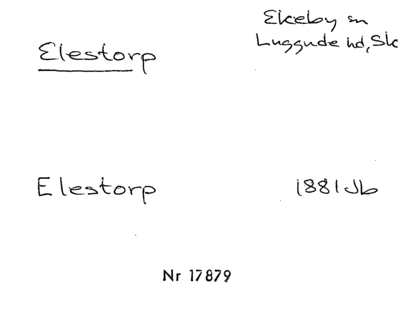 Elestorp
Ekeby sn
Luggude hd, Sk
Elestorp
1881 Jb
Nr 17879